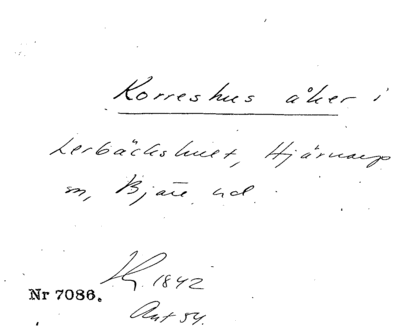 Korreshus åker i
Lerbäckshult, Hjärnarp
sn, Bjäre hd.
Hy. 1842
Nr 7086.
Ant 54.